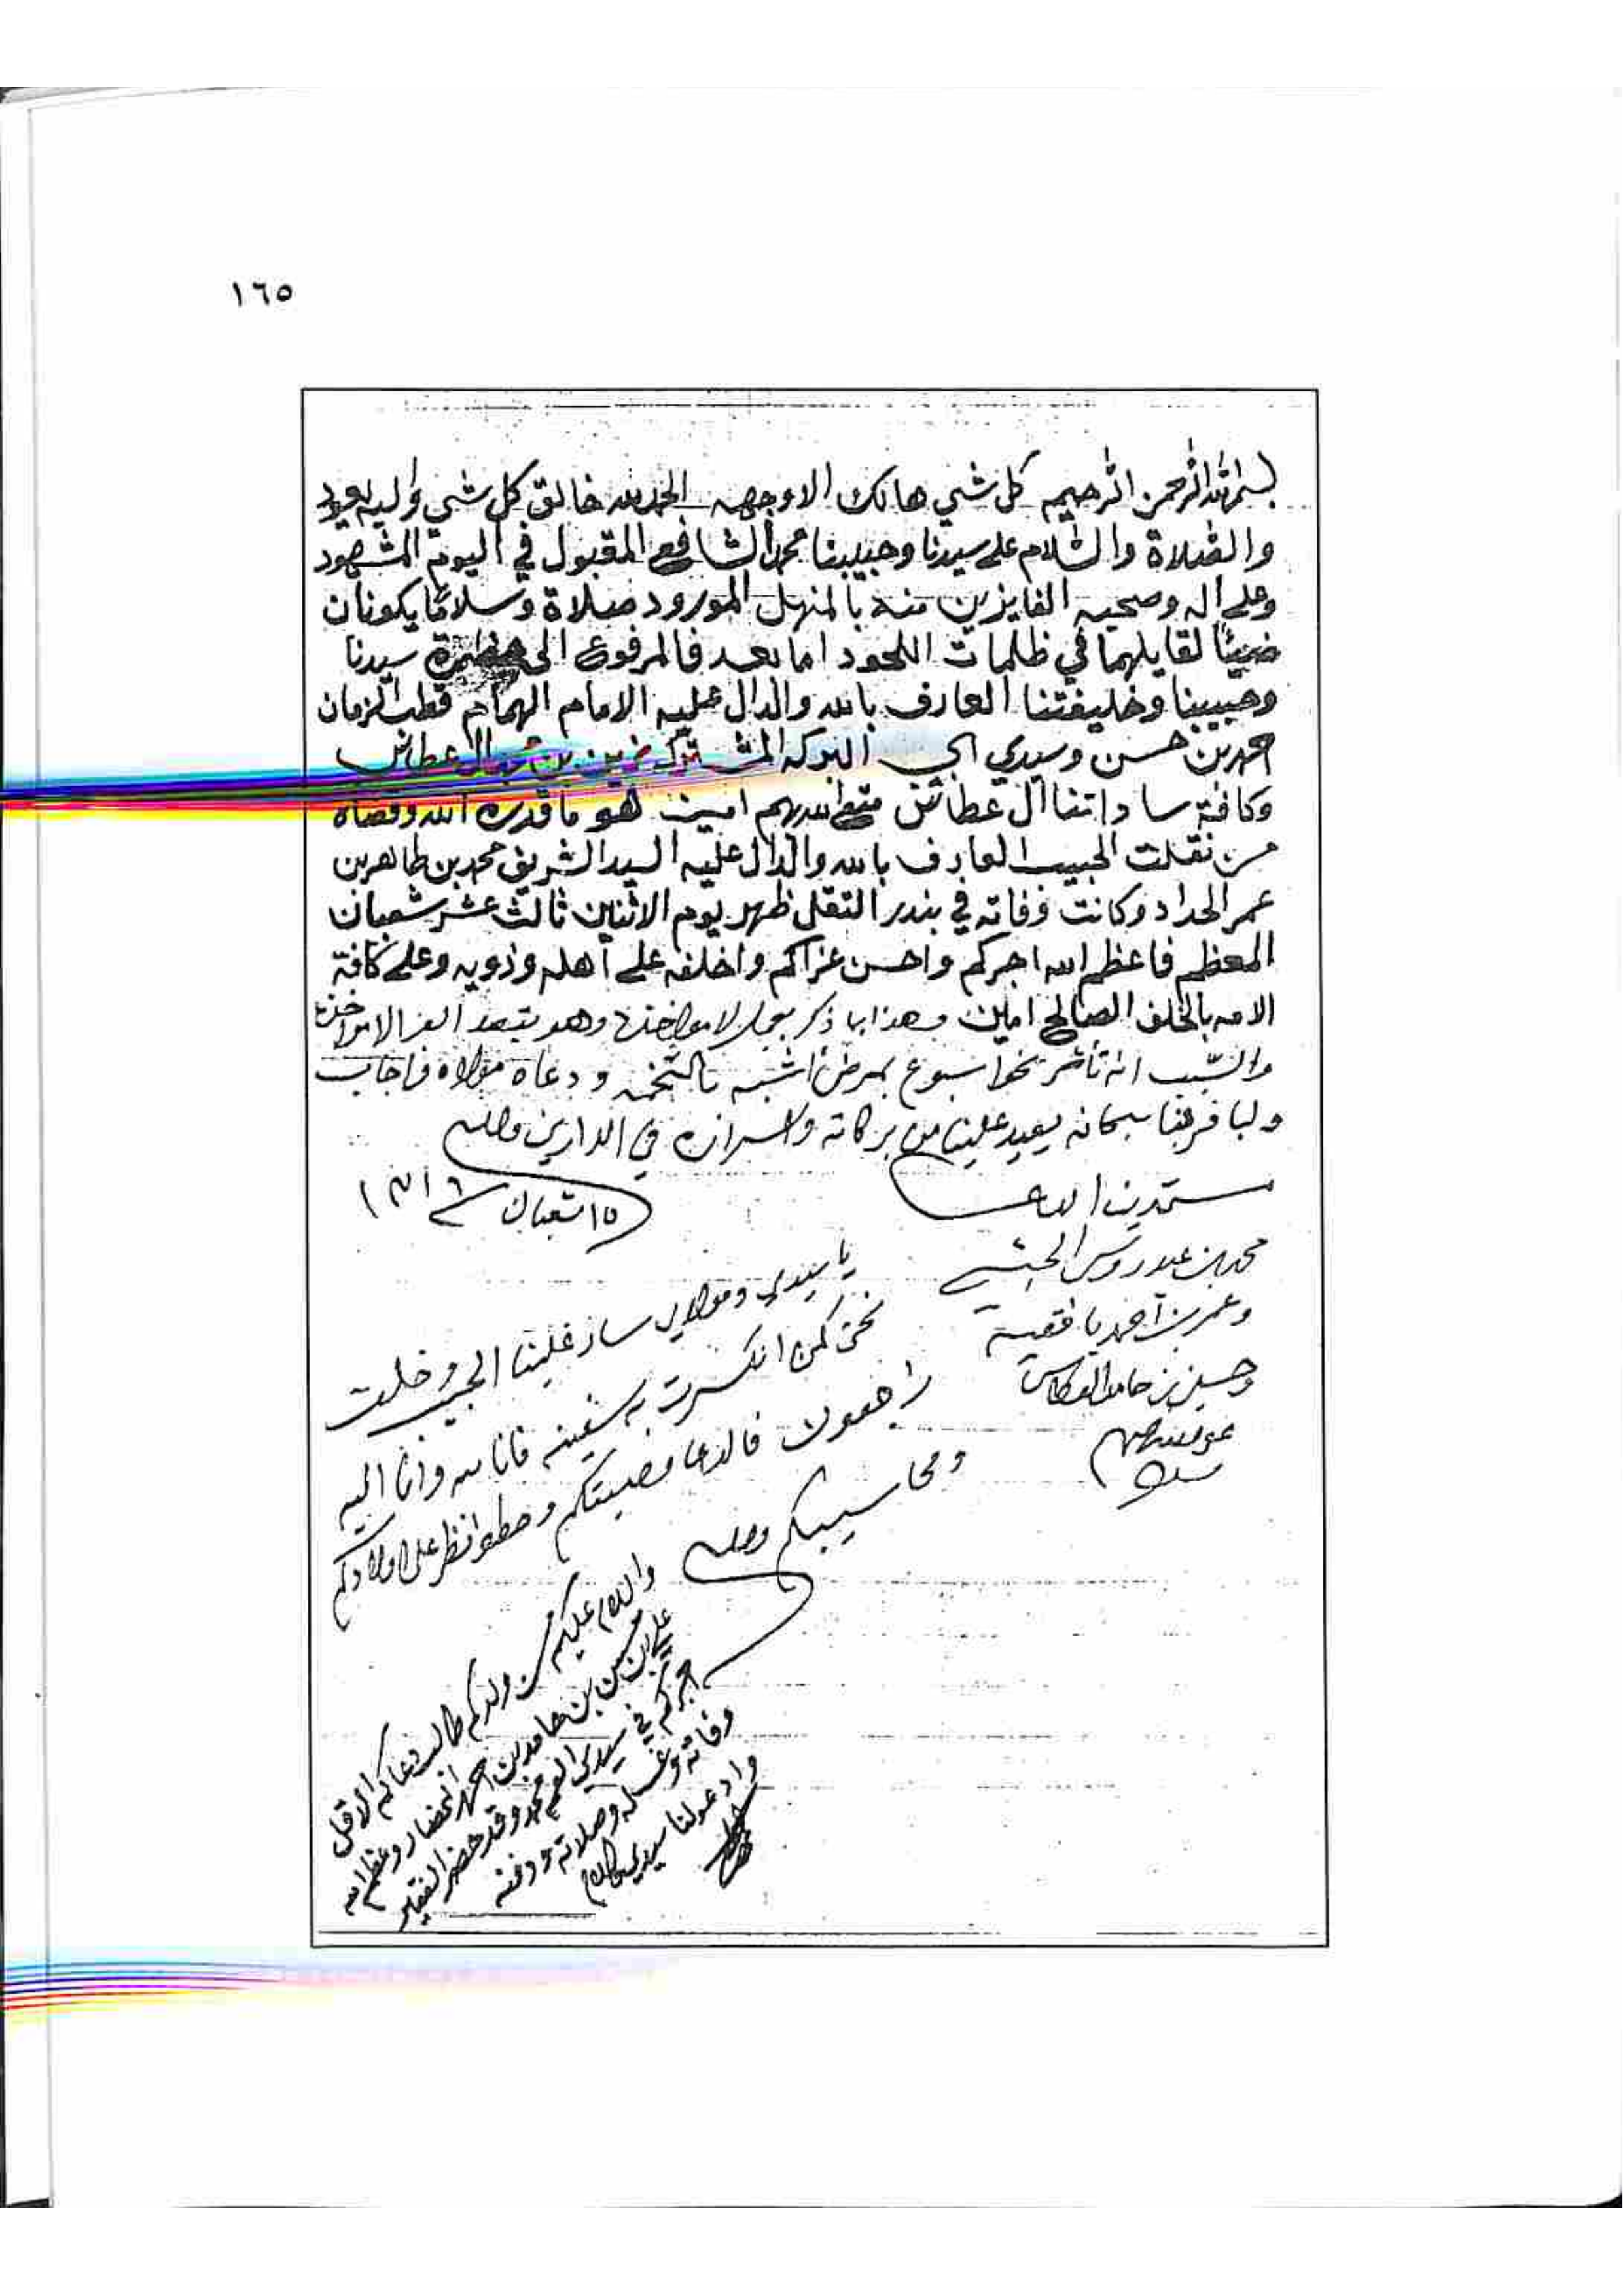 ١٦٥
بسم الله الرحمن الرحيم كل شي هالك الا وجهه الحمد لله خالق كل شي واليه يعود
والصلاة والسلام على سيدنا وحبيبنا محمد الشافع المقبول في اليوم المشهود
وعلى اله وصحبه الفايزين منه بالمنهل المورود صلاة وسلاما يكونان
ضيئا لقايلهما في ظلمات اللحود اما بعد فالمرفوع الى حضرة سيدنا
وحبيبنا وخليفتنا العارف بالله والدال عليه الامام الهمام قطب الزمان
احمد بن حسن وسيدي البركه ال عطاس
وكافة ساداتنا ال عطاس متع الله بهم امين هو ما قدره الله وقضاه
من نقلت الحبيب العارف بالله والدال عليه السيد الشريف محمد بن طاهر بن
عمر الحداد وكانت وفاته في بندر التقل ظهر يوم الاثنين ثالث عشر شعبان
المعظم فاعظم الله اجركم واحسن عزاكم واخلفه على اهله وذويه وعلى كافة
الامه بالخلف الصالح امين وهذا ما ذكر بعجل لا مواخذه وهو بقصد العزا لا مواخذه
والسبب انه تأثر نحو اسبوع بمرض اشبه بالتخمه ودعاه مولاه فاجاب
ولبا فربنا سبحانه يعيد علينا من بركاته واسراره في الدارين والسلام
١٥ شعبان ١٣١٦
مستمدين الدعاء
محمد بن عيدروس الحبشي
وعمر بن احمد بافقيه
وحسين بن حامد العطاس
عفى الله عنهم
يا سيدي ومولاي سار علينا الحبيب وخلت
نحن كمن انكسرت به سفينه فانا لله وانا اليه
راجعون فالدعا وصيتكم وحطوا نظر على اولادكم
ومحاسيبكم والسلام
والسلام عليكم من ولدكم طالب دعاكم الاقل
علي بن حسين بن حامد بن احمد المحضار وعظم الله
اجركم في سيدي العم محمد وقد حضر الفقير
وفاته وغسله وصلاته ودفنه
وادعوا لنا سيدي والسلام